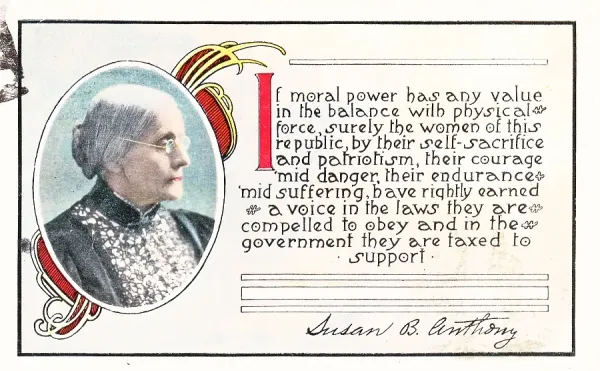 If moral power has any value
in the balance with physical
force, surely the women of this
republic, by their self-sacrifice
and patriotism, their courage
'mid danger, their endurance
'mid suffering, have rightly earned
a voice in the laws they are
compelled to obey and in the
government they are taxed to
· support ·
Susan B. Anthony